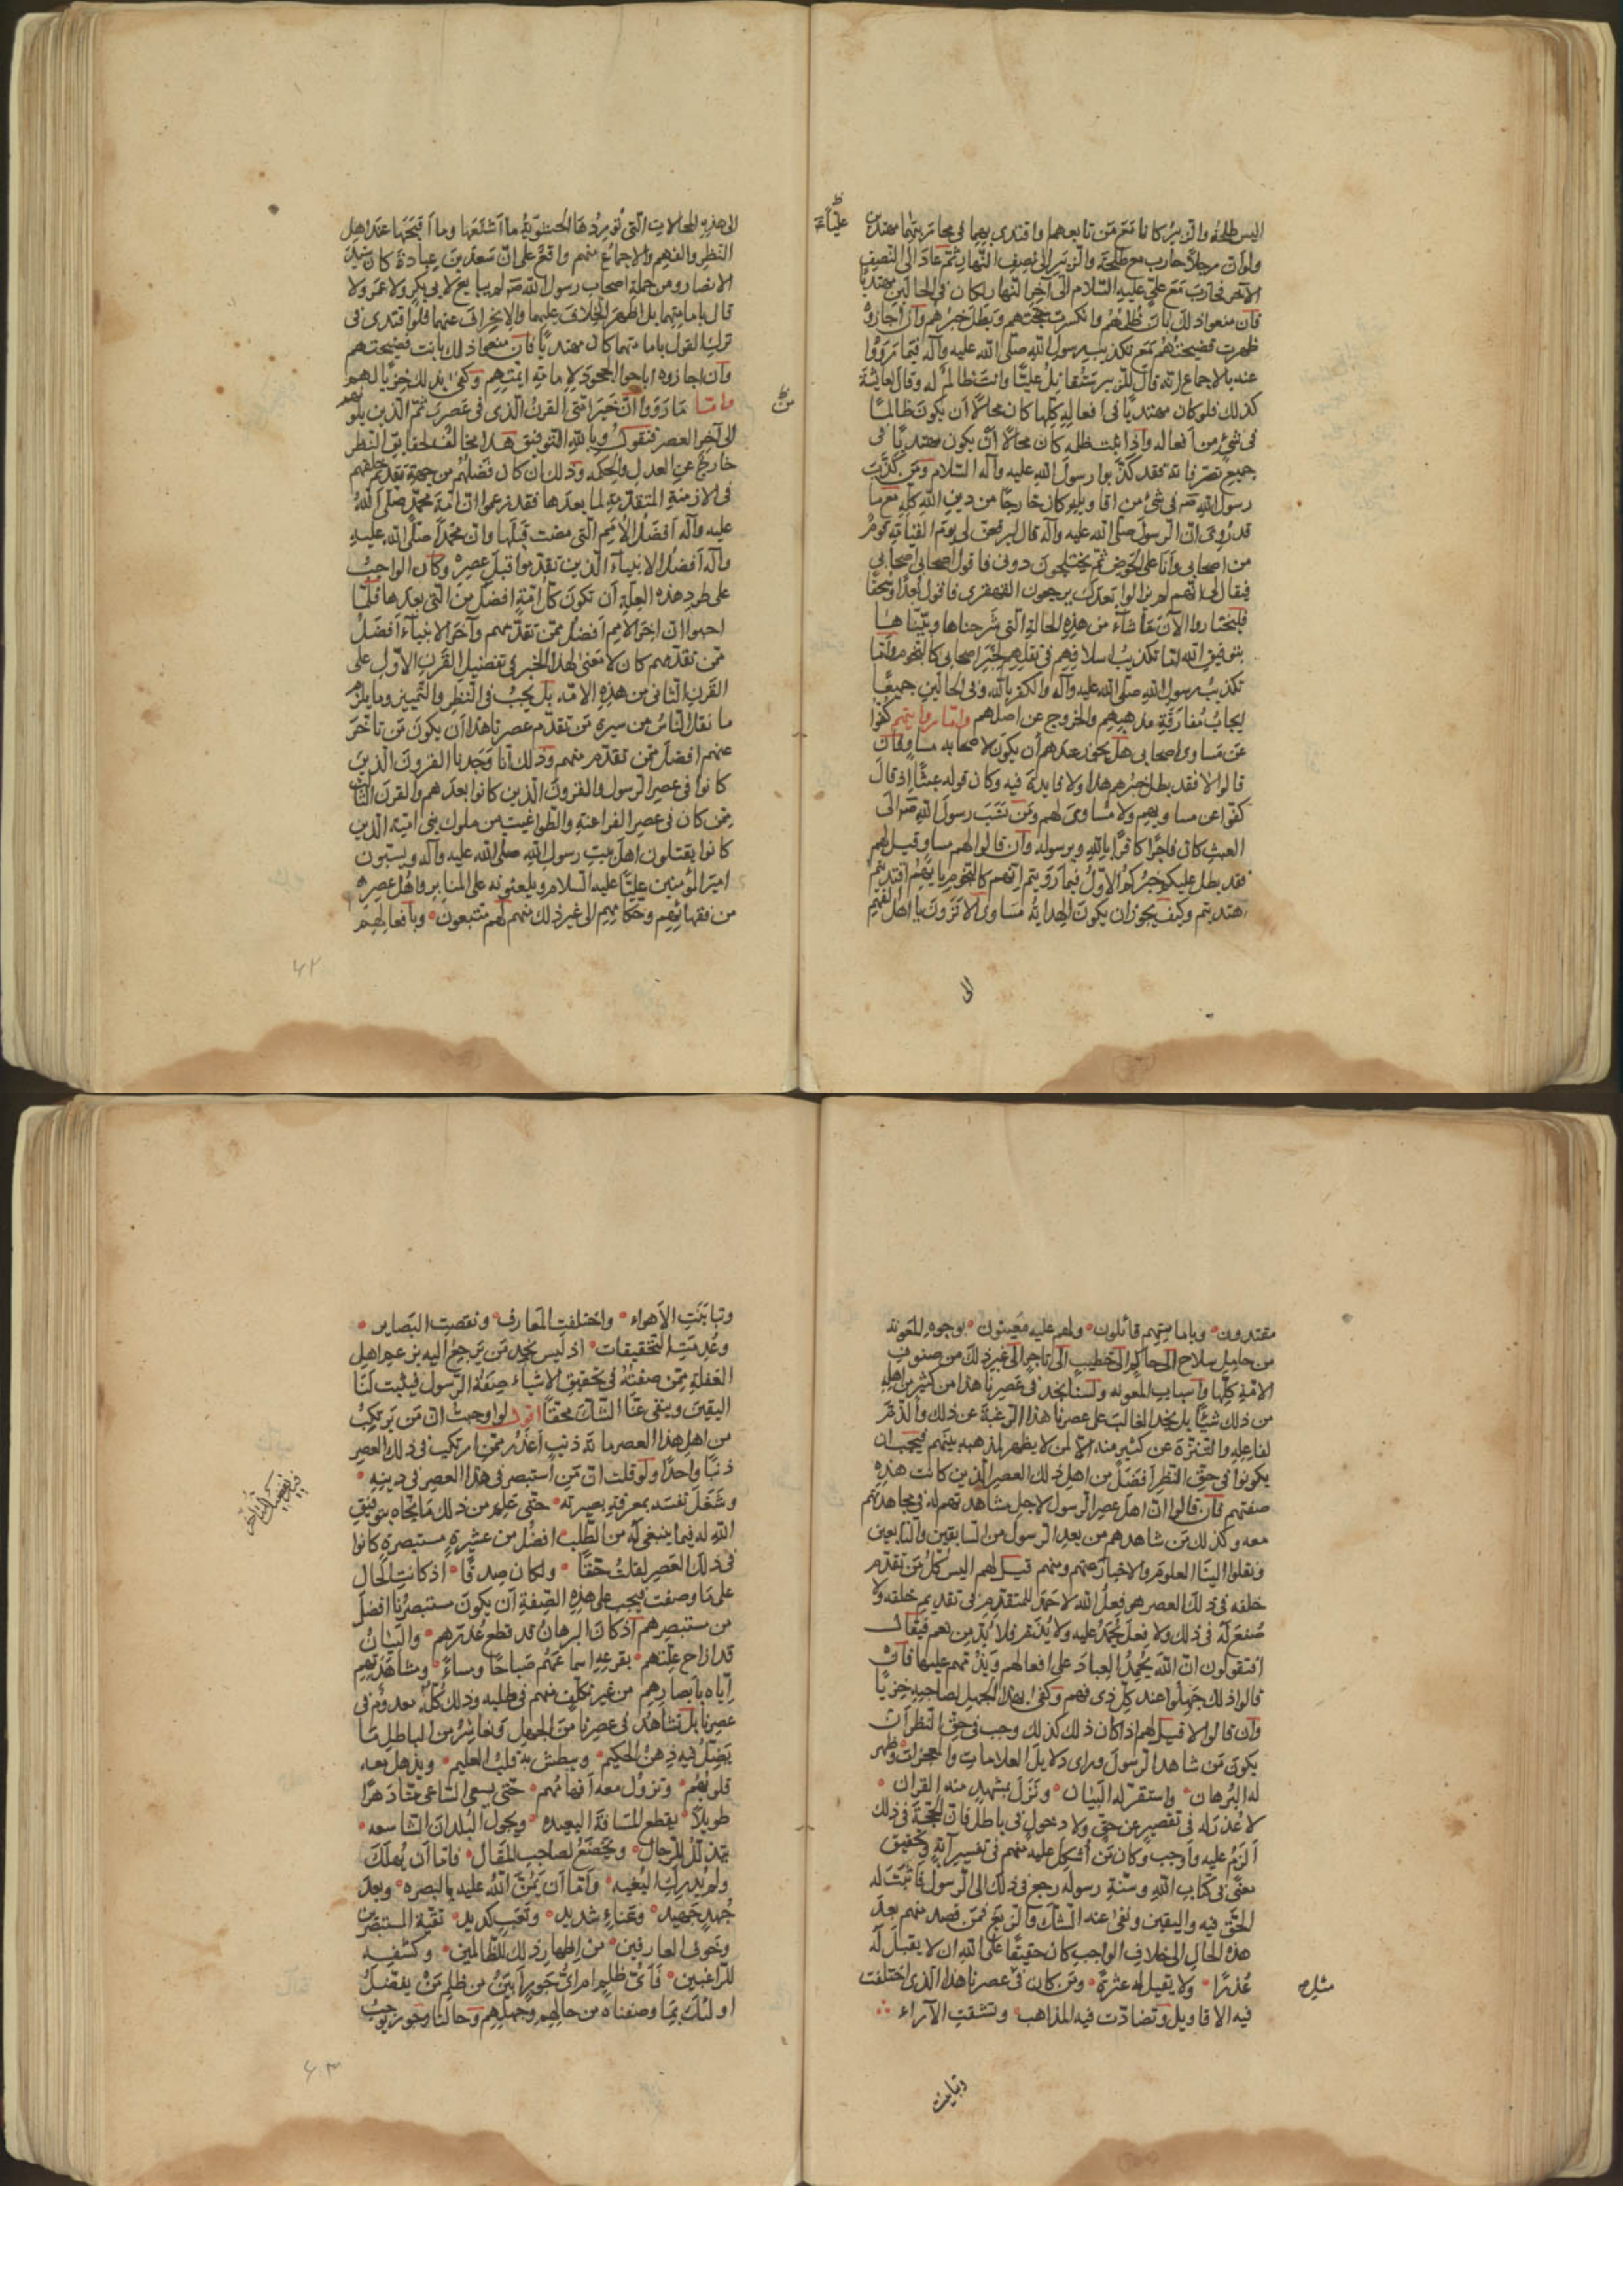 اليس طلحة والزبير كانا مَعَ مَن تابعهما واقتدى بهما في محاربتهما مهتدين
علياً ع
ولو ان رجلا حارب مع طلحة والزبير الى نصف النهار ثم عاد الى النصف
الآخر فحارب مع علي عليه السلام الى آخر النهار لكان في الحالين مهتديا
فان منعوا ذلك بان ظلمهم وانكسرت حجتهم وبطل خبرهم وان اجازوه
ظهرت فضيحتهم مع تكذيب رسول الله صلى الله عليه وآله فيما رووا
عنه بالاجماع انه قال للزبير ستقاتل عليّا وانت ظالم له وقال لعايشة
كذلك فلو كان مهتديا في افعاله كلها كان محالا ان يكون ظالما
في شيء من افعاله واذا ثبت ظلمه كان محالا ان يكون مهتديا في
جميع تصرفاته فقد كذبوا رسول الله عليه وآله السلام ومن كذّب
رسول الله ص في شيء من اقاويله كان خارجا من دين الله كله مع ما
قد روى ان الرسول صلى الله عليه وآله قال ليرفعن لي يوم القيامة قوم
من اصحابي وانا على الحوض ثم يختلجون دوني فاقول اصحابي اصحابي
فيقال لي انهم لم يزالوا بعدك يرجعون القهقرى فاقول بُعدا وسحقا
فليختاروا الآن ما شاء من هذه الحالة التي شرحناها وبيّنا هنا
بتوفيق الله اما تكذيب اسلافهم في نقلهم لخبر اصحابي كالنجوم واما
تكذيب رسول الله صلى الله عليه وآله والكفر بالله وفي الحالين جميعا
ايجاب مفارقة مذهبهم والخروج عن اصلهم واما روايتهم كفوا
عن مساوى اصحابي هل يجوز عندهم ان يكون لاصحابه مساو فان
قالوا لا فقد بطل خبرهم هذا ولا فايدة فيه وكان قوله عبثا اذ قال
كفوا عن مساويهم ولا مساوى لهم ومن نسب رسول الله ص الى
العبث كان فاجرا كافرا بالله وبرسوله وان قالوا لهم مساو قيل لهم
فقد بطل عليكم خبركم الاول فيما رويتم انهم كالنجوم بايهم اقتديتم
اهتديتم وكيف يجوز ان يكون الهداية مساوى الا ترون يا اهل الفهم
الى
الى هذه المحالات التي توردها الحشوية ما اشنعها وما اقبحها عند اهل
النظر والفهم والاجماع منهم واقع على ان سعد بن عبادة كان سيد
الانصار ومن جملة اصحاب رسول الله ص لم يبايع لابي بكر ولا عمر ولا
قال بامامتهما بل اظهر الخلاف عليهما والانحراف عنهما فلو اقتدى في
ترك القول بامامتهما كان مهتديا فان منعوا ذلك بانت فضيحتهم
وان اجازوه اباحوا الجحود لامامة ايمتهم وكفى بذلك خزيا لهم
واما ما رووا ان خير امتي القرن الذي في عصري ثم الذين يلونهم
الى آخر العصر فنقول وبالله التوفيق هذا مخالف لحقايق النظر
خارج عن العدل والحكمة وذلك ان كان فضلهم من جهة تقدم خلقهم
في الازمنة المتقدمة لما بعدها فقد زعموا ان امة محمد صلى الله
عليه وآله افضل الامم التي مضت قبلها وان محمدا صلى الله عليه
وآله افضل الانبياء الذين تقدموا قبل عصره وكان الواجب
على طرد هذه العلة ان تكون كل امة افضل من التي بعدها فلمّا
اجمعوا ان آخر الامم افضل ممن تقدم منهم وآخر الانبياء افضل
ممن تقدمهم كان لا معنى لهذا الخبر في تفضيل القرن الاول على
القرن الثاني من هذه الامة بل يجب في النظر والتمييز وما يلزم
ما نقل الناس من سيرة من تقدم عصرنا هذا ان يكون من تاخر
عنهم افضل ممن تقدم منهم وذلك انا وجدنا القرون الذين
كانوا في عصر الرسول والقرون الذين كانوا بعدهم والقرن الثاني
ممن كان في عصر الفراعنة والطواغيت من ملوك بني امية الذين
كانوا يقتلون اهل بيت رسول الله صلى الله عليه وآله ويسبون
امير المؤمنين عليا عليه السلام ويلعنونه على المنابر واهل عصره
من فقهائهم وحكامهم الى غير ذلك منهم لهم متبعون وبافعالهم
٤٢
مقتدون وبامامتهم قائلون ولهم عليه معينون بوجوه المعونة
من حامل سلاح الى حاكم الى خطيب الى تاجر الى غير ذلك من صنوف
الامة كلها واسباب المعونة ولسنا نجد في عصرنا هذا من كثير من اهله
من ذلك شيئا بل نجد الغالب على عصرنا هذا الرغبة عن ذلك والذم
لفاعله والتنزه عن كثير منه الا لمن لا يظهر لمذهبه بينهم فيجب ان
يكونوا في حق النظر افضل من اهل ذلك العصر الذين كانت هذه
صفتهم فان قالوا ان اهل عصر الرسول لاجل مشاهدتهم له في مجاهدتهم
معه وكذلك من شاهدهم من بعد الرسول من السابقين والتابعين
ونقلوا الينا العلوم والاخبار عنهم ومنهم قيل لهم اليس كل من تقدم
خلقه في ذلك العصر هو فعل الله لا حمد للمتقدم في تقديم خلقه ولا
صنع له في ذلك ولا فعل يحمد عليه ولا يذم فلا بد من نعم فيقال
افتقولون ان الله يحمد العباد على افعالهم ويذمهم عليها فان
قالوا ذلك جهلوا عند كل ذي فهم وكفى بهذا الجهل لصاحبه خزيا
وان قالوا لا قيل لهم اذا كان ذلك كذلك وجب في حق النظر ان
يكون من شاهد الرسول وراى دلايل العلامات والمعجزات وظهر
له البرهان واستقر له البيان ونزل بمشهد منه القران
لا عذر له في تقصير عن حق ولا دخول في باطل فان الحجة في ذلك
الزم عليه واوجب وكان من اشكل عليه منهم في تفسير آية وتحقيق
معنى في كتاب الله وسنة رسوله رجع في ذلك الى الرسول فاثبت له
الحق فيه واليقين ونفى عنه الشك والزيغ فمن قصد منهم بعد
هذه الحال الى خلاف الواجب كان حقيقا على الله ان لا يقبل له
عذرا ولا يقيل له عثرة ومن كان في عصرنا هذا الذي اختلفت
فيه الاقاويل وتضادت فيه المذاهب وتشتت الآراء
وتباينت
وتباينت الاهواء واختلفت المعارف ونقصت البصاير
وعدمت التحقيقات اذ ليس نجد من يرجع اليه بزعم اهل
الغفلة ممن صفته في تحقيق الاشياء صفة الرسول فيثبت لنا
اليقين وينفى عنا الشك محقا اقول لو اوجبت ان من يرتكب
من اهل هذا العصر مائة ذنب اعذر ممن ارتكب في ذلك العصر
ذنبا واحدا ولو قلت ان من استبصر في هذا العصر في دينه
وشغل نفسه بمعرفة بصيرته حتى علم من ذلك ما نجاه بتوفيق
الله له فيما ينبغي له من الطلب افضل من عشرة مستبصرة كانوا
في ذلك العصر لقلت حقا ولكان صدقا اذ كانت الحال
على ما وصفت فيجب على هذه الصفة ان يكون مستبصرنا افضل
من مستبصرهم اذ كان البرهان قد قطع عذرهم والبيان
قد ازاح علتهم بقرعه اسماعهم صباحا ومساء ومشاهدتهم
اياه بابصارهم من غير تكلف منهم في طلبه وذلك كله معدوم في
عصرنا بل نشاهد في عصرنا من الجهل ونعاشر من الباطل ما
يضل فيه ذهن الحكيم ويطيش به قلب العليم ويذهل معه
قلوبهم وتزول معه افهامهم حتى يسعى الساعي منا دهرا
طويلا يقطع المسافة البعيدة ويجول البلدان الشاسعة
يتذلل للرجال ويخضع لصاحب المقال فاما ان يهلك
ولم يدرك البغية واما ان يمن الله عليه بالبصره وبعد
جهد جهيد وعناء شديد وتعب كديد تقية المستبصرين
وخوف العارفين من اظهار ذلك للظالمين وكشفه
للراغبين فاي ظلم ام اي جور ابين من ظلم من يفضل
اولئك بما وصفناه من حالهم وجهلهم وحالنا وجور يوجب